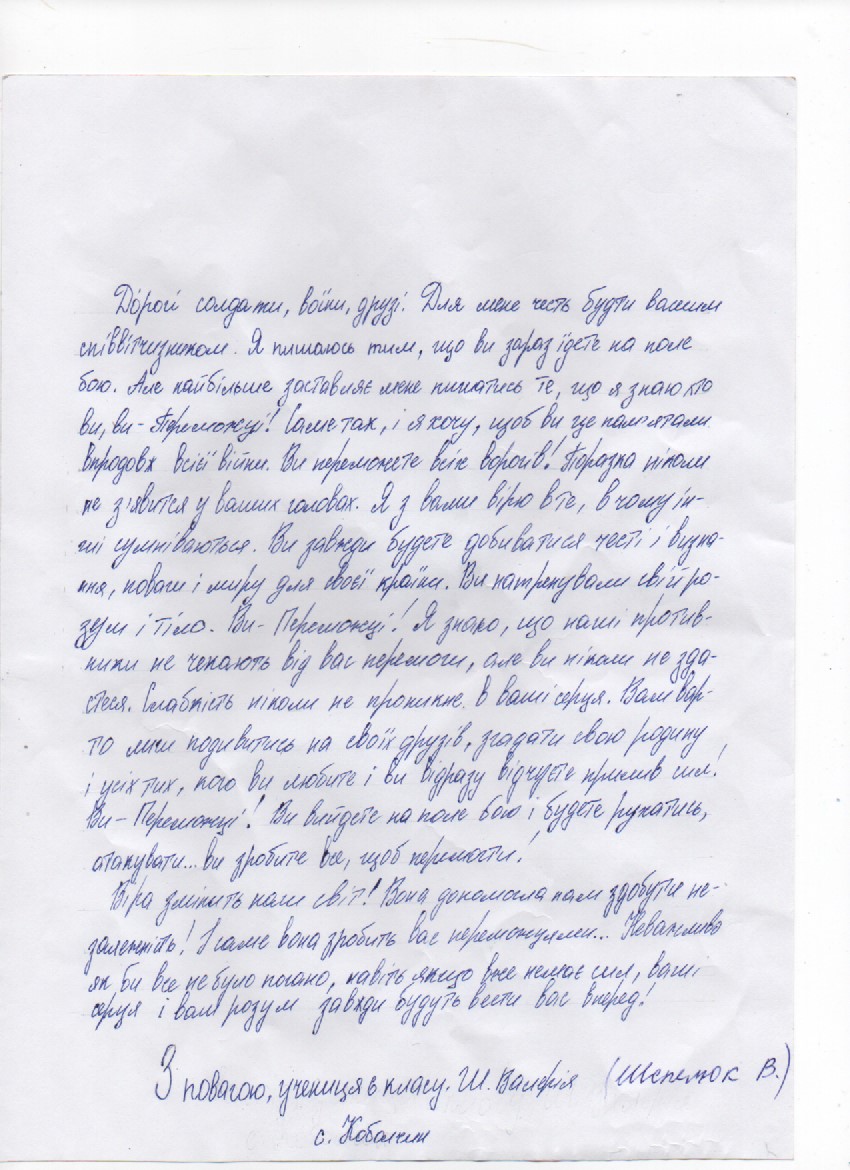 Дорогі солдати, воїни, друзі. Для мене честь будти вашим
співвітчизником. Я пишаюсь тим, що ви зараз їдете на поле
бою. Але найбільше заставляє мене пишатись те, що я знаю хто
ви, ви - Переможці! Саме так, і я хочу, щоб ви це пам'ятали
впродовж всієї війни. Ви переможете всіх ворогів! Поразка ніколи
не з'явится у ваших головах. Я з вами вірю в те, в чому ін-
ші сумніваються. Ви завжди будете добиватися честі і визна-
ння, поваги і миру для своєї країни. Ви натренували свій ро-
зум і тіло. Ви - Переможці! Я знаю, що наші против-
ники не чекають від вас перемоги, але ви ніколи не зда-
стеся. Слабкість ніколи не проникне в ваші серця. Вам вар-
то лиш подивитись на своїх друзів, згадати свою родину
і усіх тих, кого ви любите і ви відразу відчуєте прилив сил!
Ви - Переможці! Ви вийдете на поле бою і будете рухатись,
атакувати... ви зробите все, щоб перемогти!
Віра змінить наш світ! Вона допомогла нам здобути не-
залежність! І саме вона зробить вас переможцями... Неважливо
як би все не було погано, навіть якщо вже немає сил, ваші
серця і ваш розум завжди будуть вести вас вперед!
З повагою, учениця 6 класу. Ш. Валерія (Шепетюк В.)
с. Кобалчин